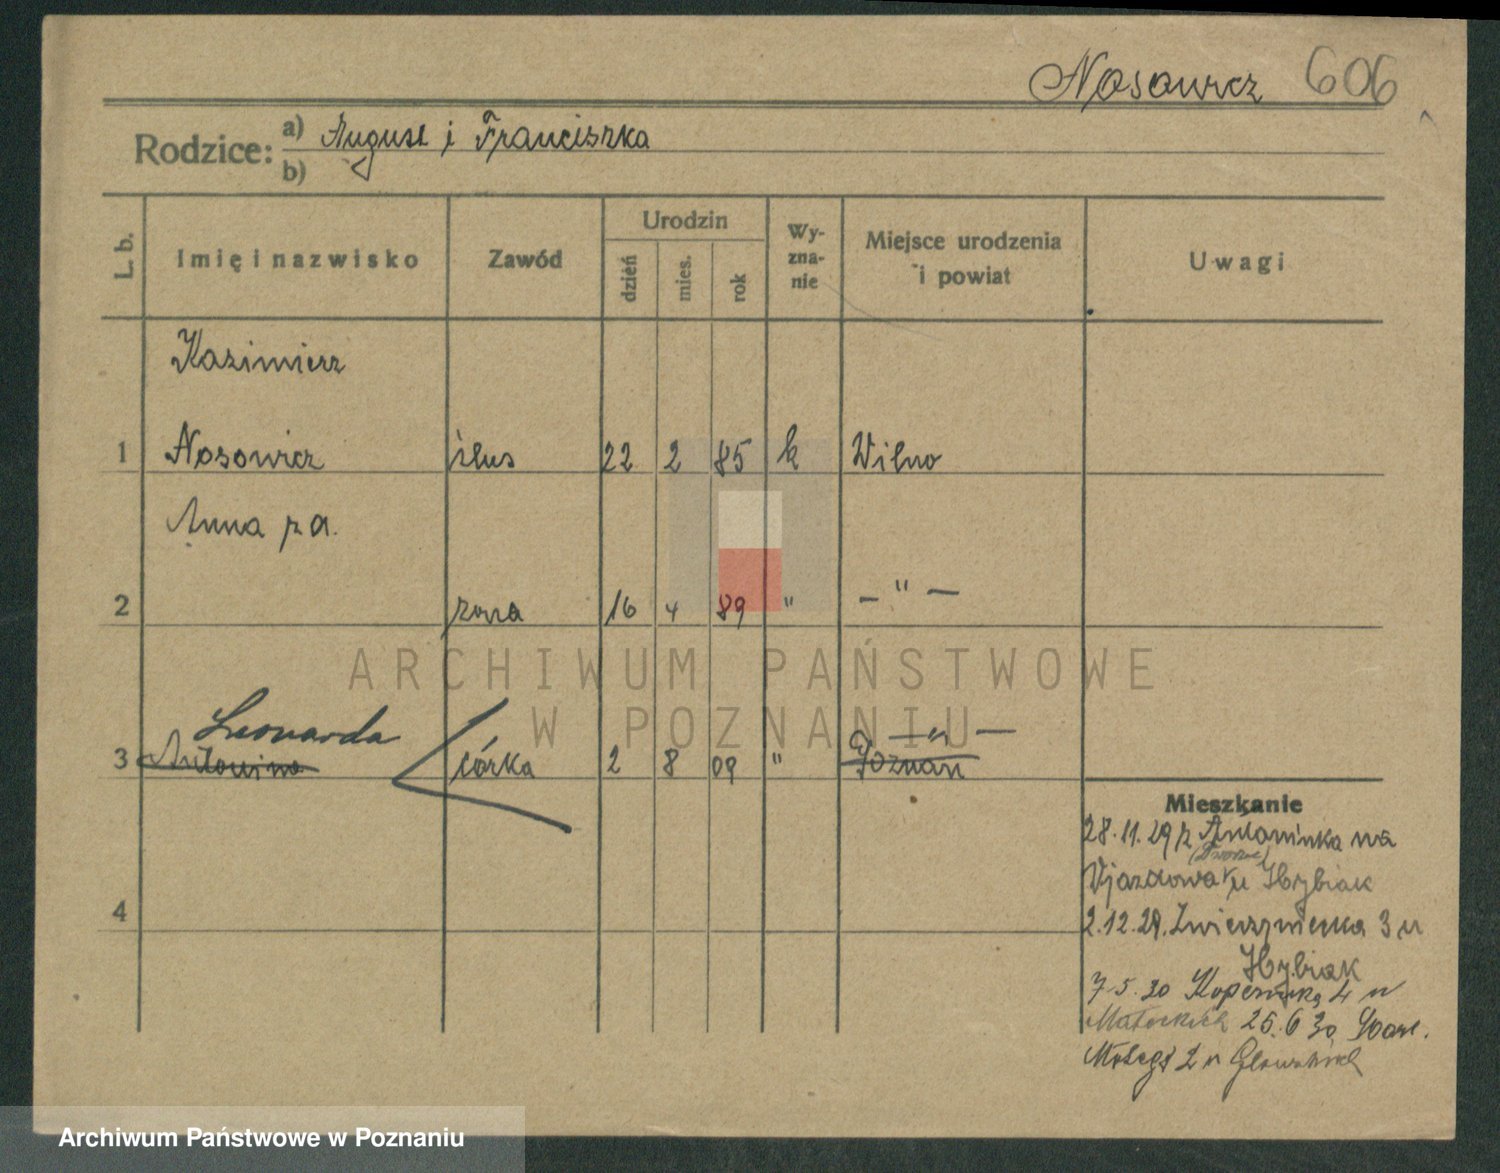 Nosowicz 606
Rodzice: a) August i Franciszka
b)
L. b.
Imię i nazwisko
Zawód
Urodzin
dzień
mies.
rok
Wy-
zna-
nie
Miejsce urodzenia
i powiat
Uwagi
Kazimierz
1 Nosowicz ślus 22 2 85 k Wilno
Anna z d.
2 żona 16 4 89 " — " —
ARCHIWUM PAŃSTWOWE
W POZNANIU
Leonarda — " —
3 Antonina córka 2 8 09 " Poznań
Mieszkanie
28.11.29 z Antoninka na
Wjazdowa u Hybiak
4
2.12.29. Zwierzyniecka 3 u
Hybiak
7.5.30 Kopernika 4 u
25.6.30
2 u
Archiwum Państwowe w Poznaniu